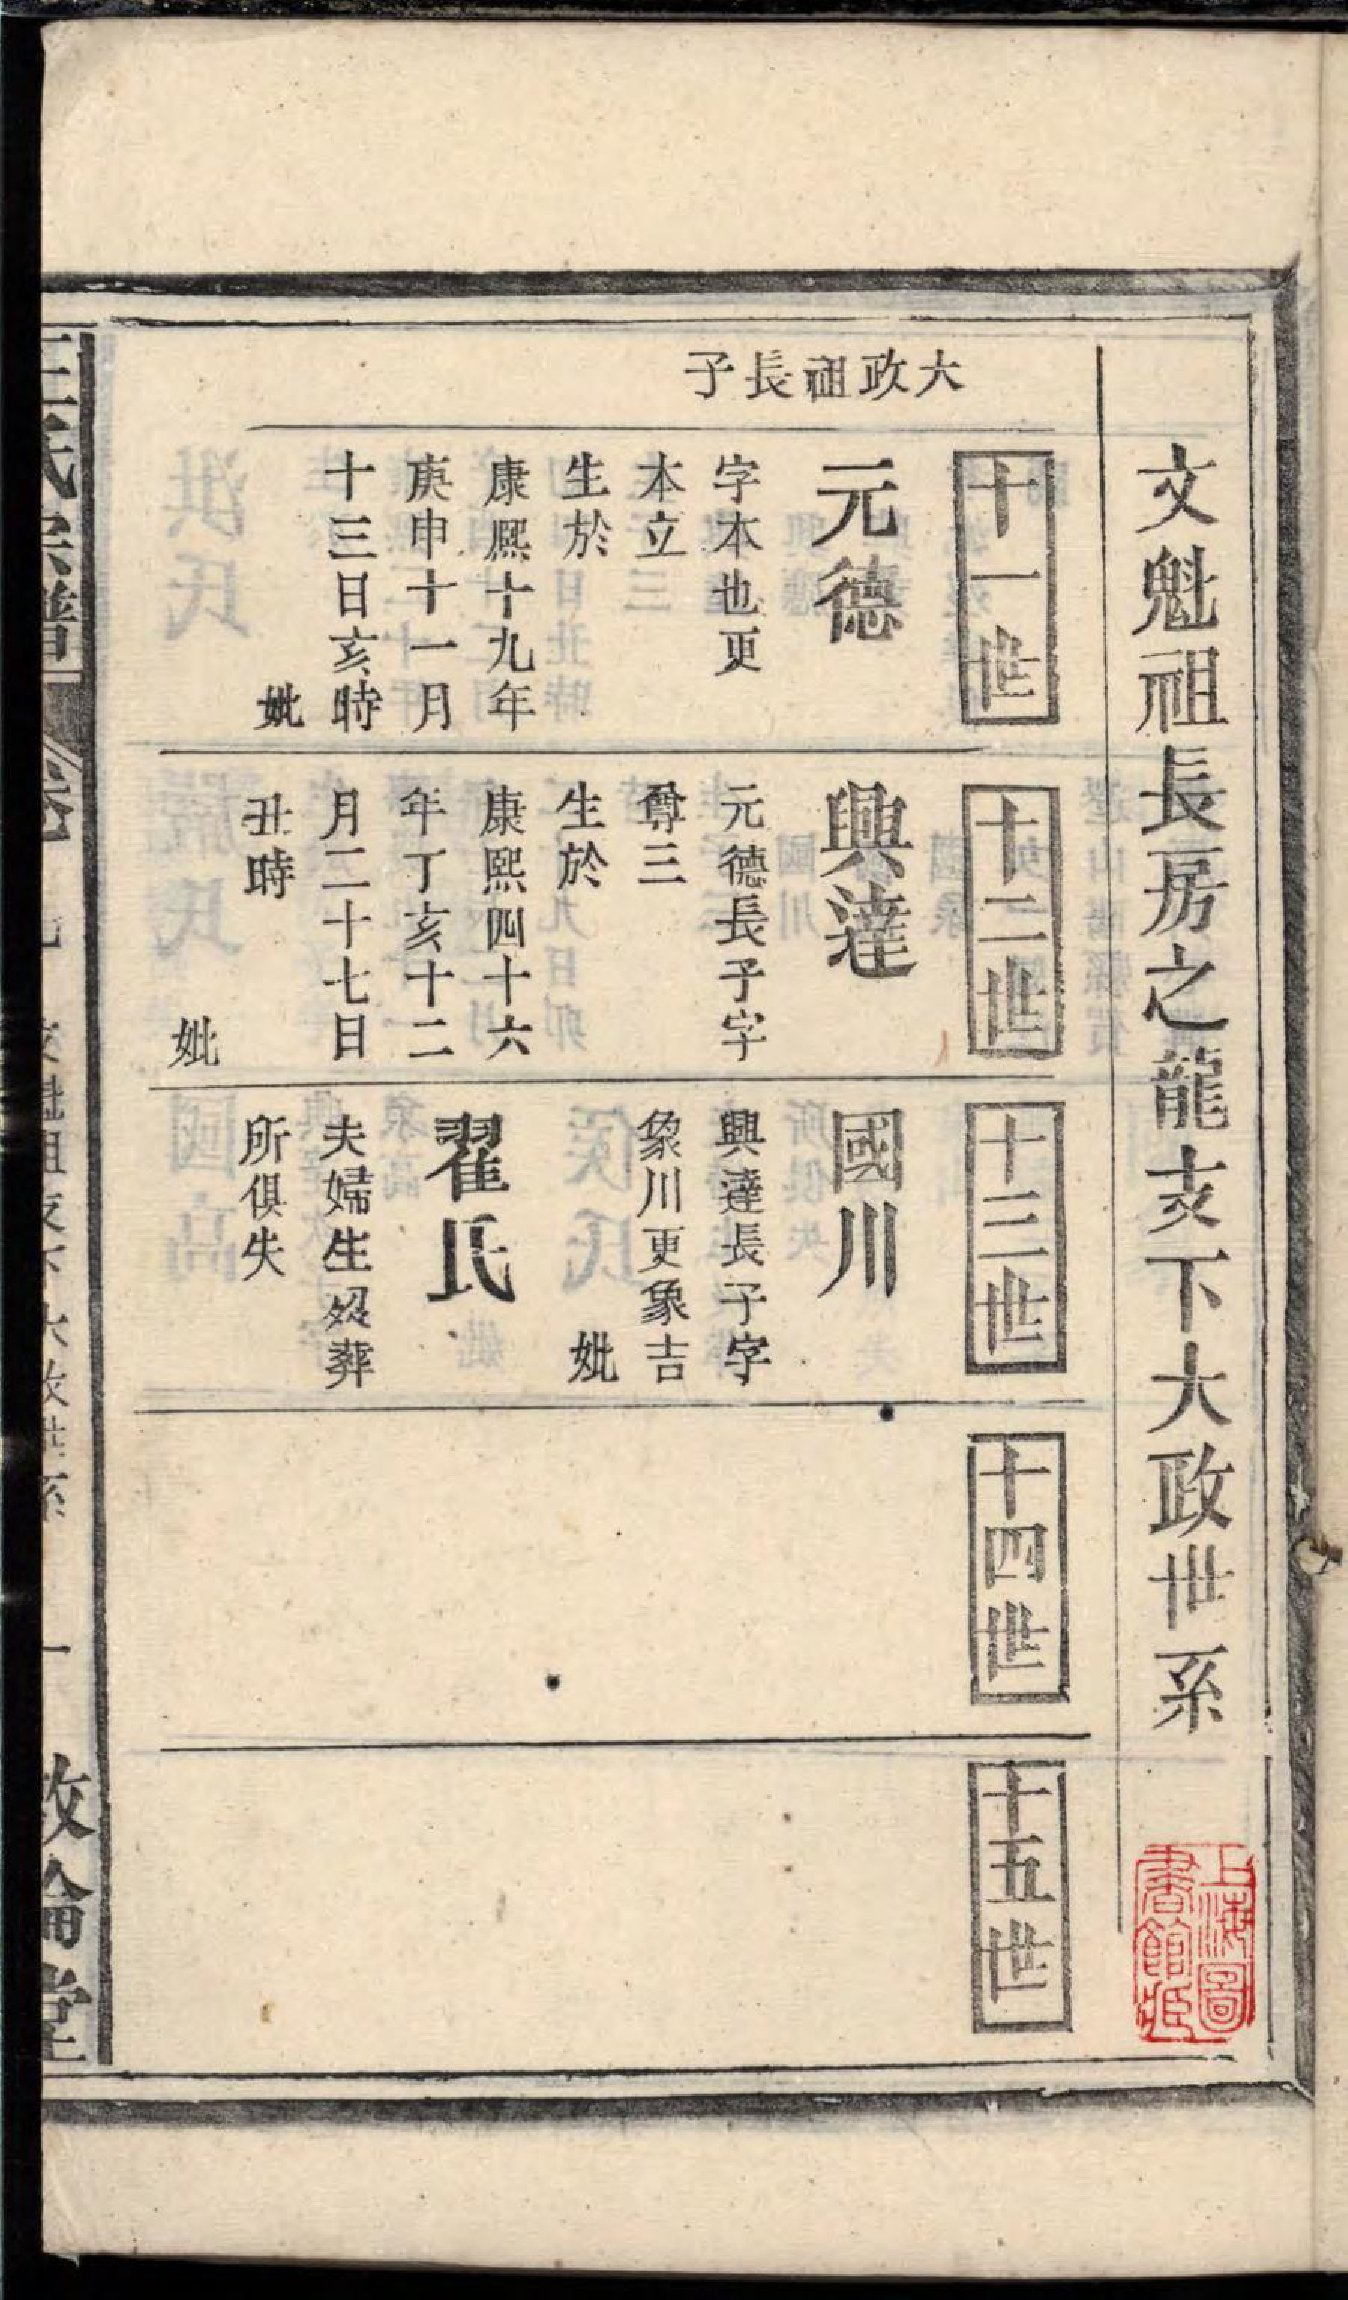 文魁祖長房之龍支下大政世系
大政祖長子
十一世
元德
字本也更
本立
生於
康熙十九年
庚申十一月
十三日亥時
妣
十二世
興達
元德長子字
尊三
生於
康熙四十六
年丁亥十二
月二十七日
丑時
妣
十三世
國川
興達長子字
象川更象吉
妣
翟氏
夫婦生殁葬
所俱失
十四世
十五世
上海圖
書館藏
王氏宗譜
卷
一
敦倫堂